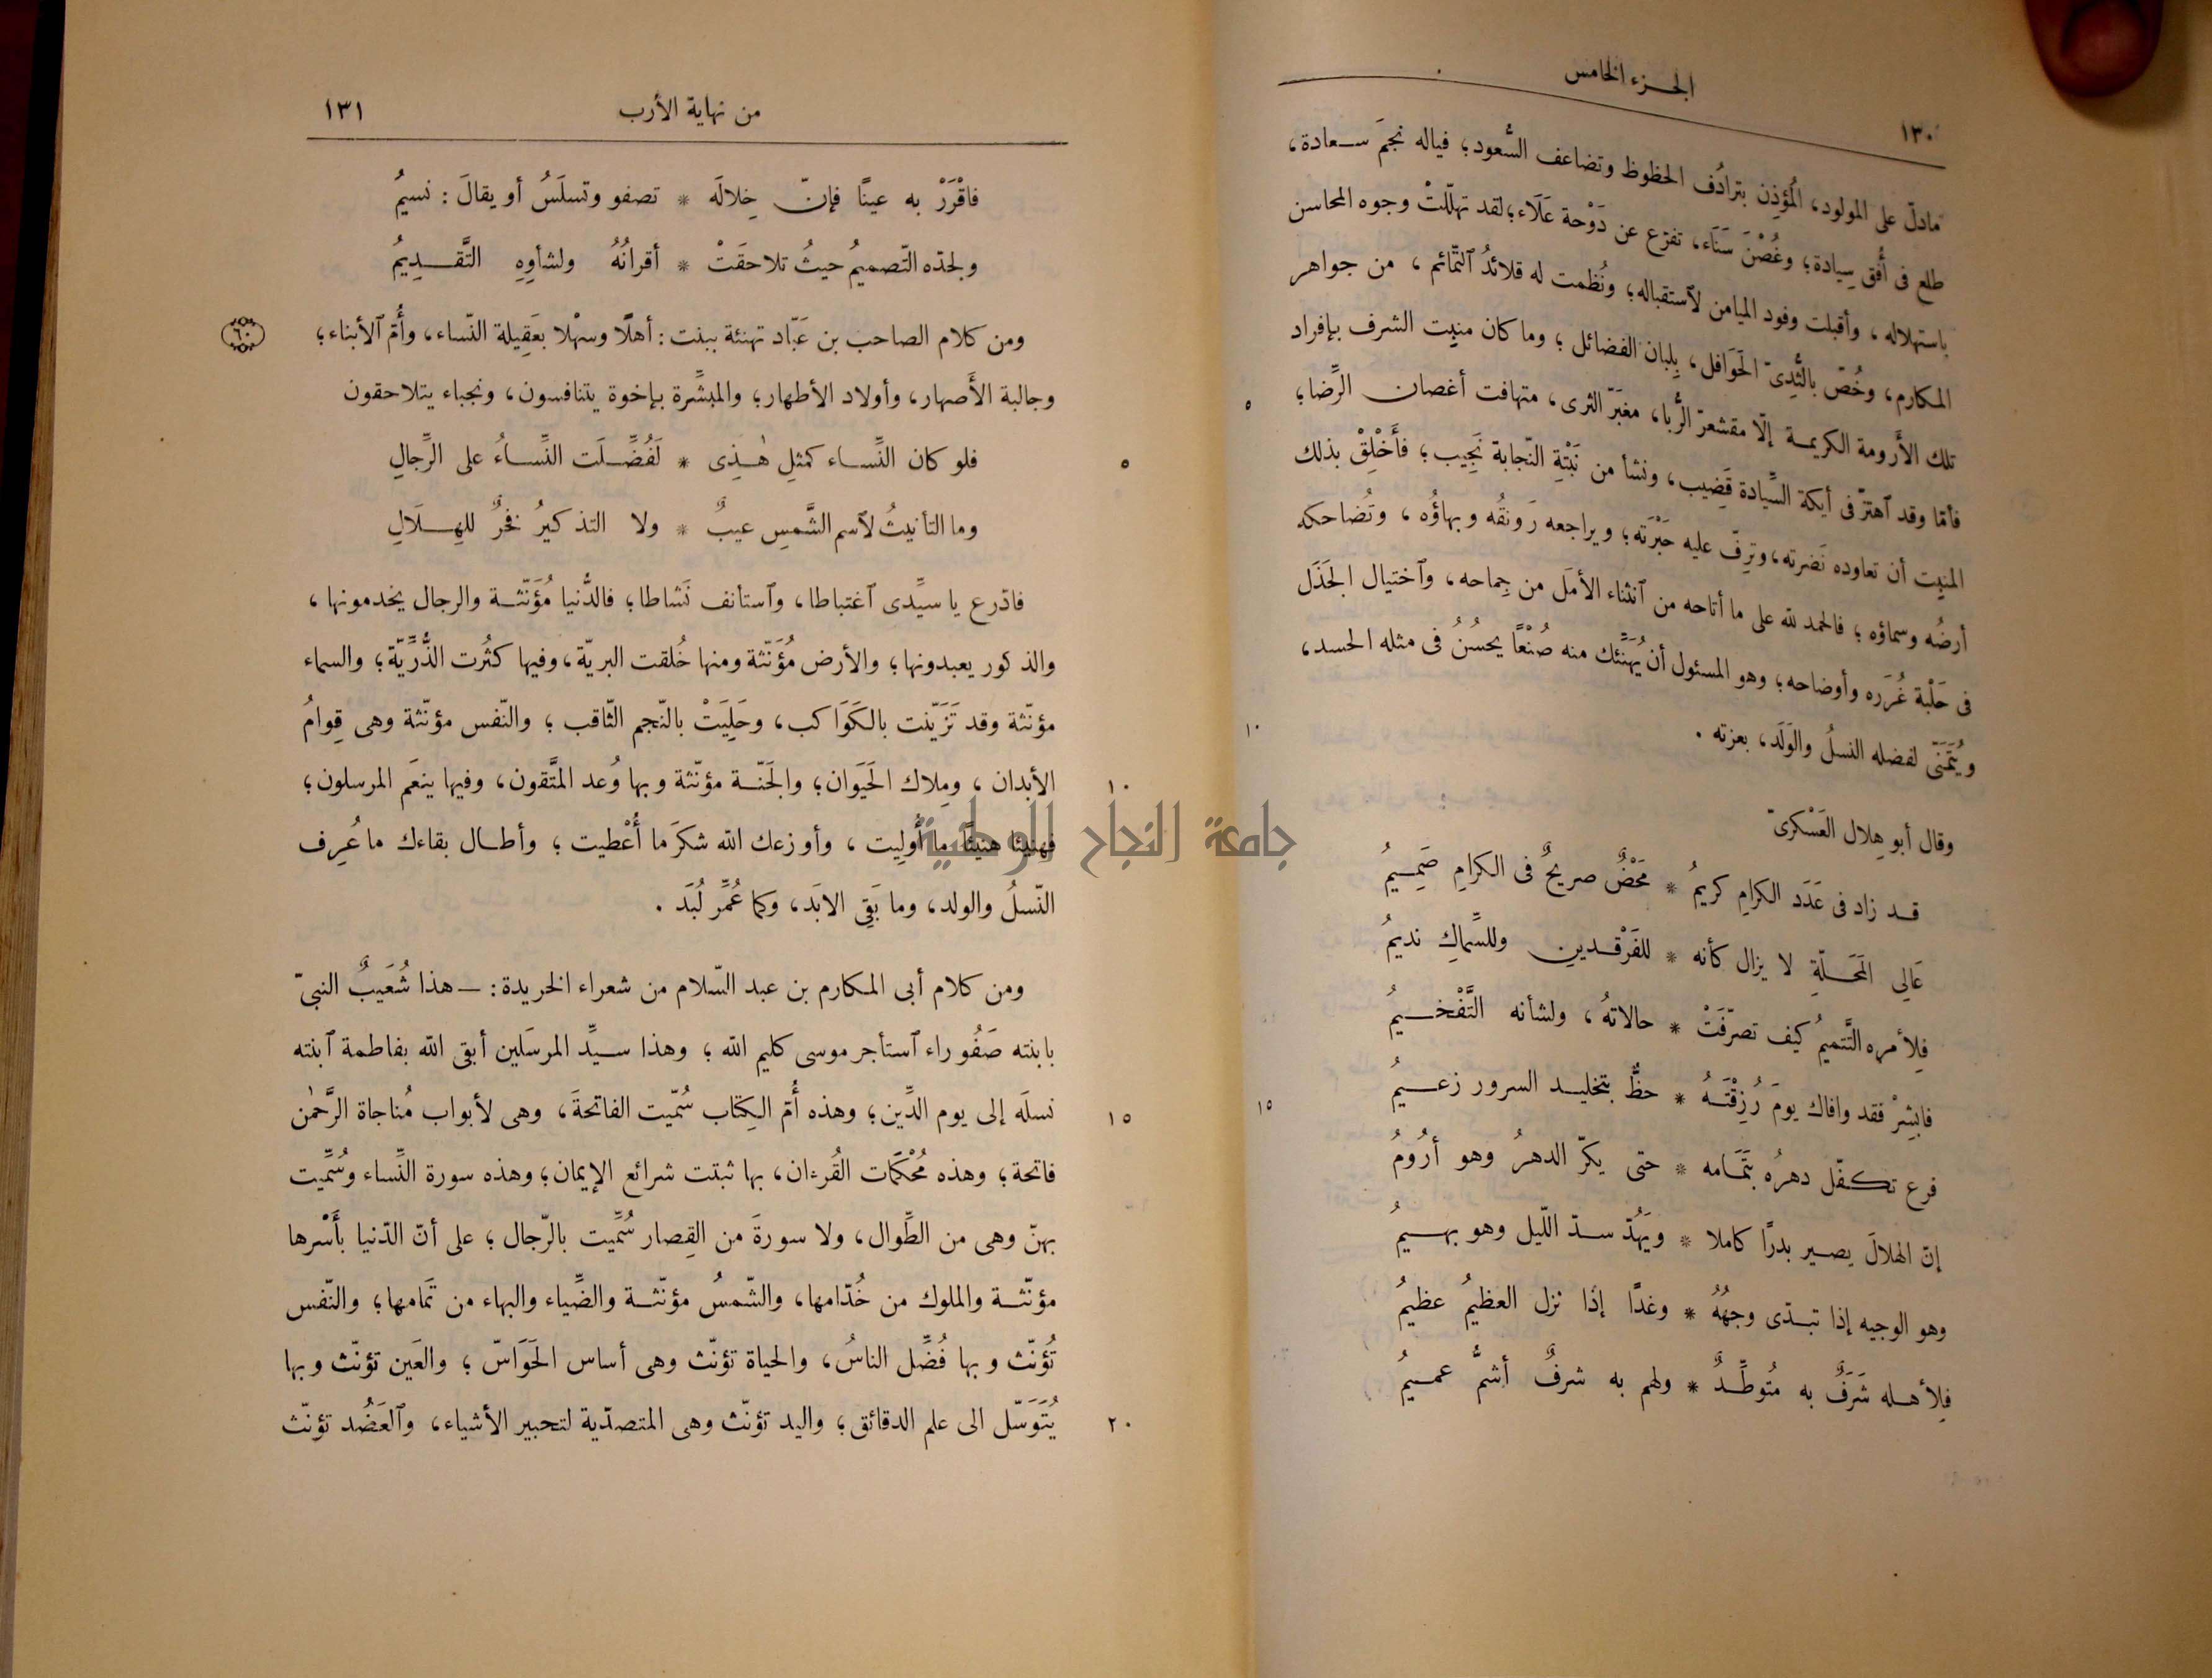 الجزء الخامس
١٣٠
مادلّ على المولود، المُؤذِن بترادُف الحظوظ وتضاعف السُّعود؛ فياله نجمَ سعادة،
طلع فى أُفق سِيادة؛ وغُصْنَ سَنَاء، تفرّع عن دَوْحة عَلَاء؛ لقد تهلّلتْ وجوه المحاسن
باستهلاله، وأقبلت وفود الميامن لاستقباله؛ ونُظمت له قلائدُ التمّائم، من جواهر
المكارم، وخُصّ بالثُّدِىّ الحَوَافل، بِلبان الفضائل؛ وما كان منبِت الشرف بإفراد
تلك الأَرومة الكريمة إلّا مقشعرّ الرُّبا، مغبَرّ الثرى، متهافت أغصان الرِّضا؛
٥
فأمّا وقد آهتزّ فى أيكة السِّيادة قَضِيب، ونشأ من نَبْتةِ النّجابة نَجِيب؛ فأَخْلِقْ بذلك
المنبِت أن تعاوده نَضرته، وترِفّ عليه حَبْرَته؛ ويراجعه رَونقُه وبهاؤُه، وتُضاحكه
أرضُه وسماؤه؛ فالحمد لله على ما أتاحه من آنثناء الأملَ من جِماحه، وآختيال الجَذَل
فى حَلْبة غُرَره وأوضاحه؛ وهو المسئول أن يُهَنِّئك منه صُنْعًا يحسُنُ فى مثله الحسد،
ويُتَمَنّى لفضله النسلُ والوَلَد، بعزته.
١٠
وقال أبو هِلال العَسْكرىّ
قد زاد فى عَدَد الكرامِ كريمُ * مَحْضٌ صريحٌ فى الكرامِ صَمِيمُ
عَالِى المَحَلّةِ لا يزال كأنه * للفَرْقدينِ وللسِّماكِ نديمُ
فِلأمره التَّتميمُ كيف تصرّفَتْ * حالاتهُ، ولشأنه التَّفْخيمُ
فابشِرْ فقد وافاك يومَ رُزِقْتَهُ * حظٌّ بتخليد السرور زعيمُ
١٥
فرع تكفّل دهرُه بتَمَامه * حتى يكرّ الدهرُ وهو أرُومُ
إنّ الهلالَ يصير بدرًا كاملا * ويَهُدّ سدّ اللّيل وهو بهيمُ
وهو الوجيه إذا تبدّى وجهُهُ * وغدًا إذا نزل العظيمُ عظيمُ
فِلأهله شَرَفٌ به مُتُوطِّدٌ * ولهم به شرفٌ أشمُّ عميمُ
من نهاية الأرب
١٣١
فاقْرَرْ به عينًا فإنّ خِلالَه * تصفو وتسلَسُ أو يقالَ: نسيمُ
ولحدّه التّصميمُ حيثُ تلاحقَتْ * أقرانُهُ ولشأوِهِ التَّقدِيمُ
ومن كلام الصاحب بن عَبّاد تهنئة ببنت: أهلًا وسهْلا بعَقِيلة النّساء، وأُمّ الأبناء؛
٦٠
وجالبة الأَصهار، وأولاد الأطهار؛ والمبشِّرة بإخوة يتنافسون، ونجباء يتلاحقون
فلو كان النِّساء كمثلِ هٰذِى * لَفُضِّلَت النِّساءُ على الرِّجالِ
٥
وما التأنيثُ لاَسم الشَّمسِ عيبٌ * ولا التذكيرُ فخرٌ للهِلَالِ
فادّرع يا سيِّدى آغتباطا، وآستأنف نَشاطا؛ فالدُّنيا مُؤَنّثة والرجال يخدمونها،
والذكور يعبدونها؛ والأرض مُؤَنّثة ومنها خُلقت البريّة، وفيها كثُرت الذُّرِّيّة؛ والسماء
مؤنّثة وقد تَزَيّنت بالكَوَاكب، وحَلِيَتْ بالنّجم الثّاقب؛ والنّفس مؤنّثة وهى قِوامُ
الأبدان، ومِلاك الحَيَوان؛ والجَنّة مؤنّثة وبها وُعد المتّقون، وفيها ينعَم المرسلون؛
١٠
فهنيئا هنيئًا ما أُولِيت، وأوزعك الله شكرَ ما أُعْطيت؛ وأطال بقاءك ما عُرِف
النّسلُ والولد، وما بَقِى الابَد، وكما عُمِّر لُبَد.
ومن كلام أبى المكارم بن عبد السّلام من شعراء الخريدة: — هذا شُعَيبٌ النبىّ
بابنته صَفُوراء آستأجر موسى كليم الله؛ وهذا سيِّد المرسَلين أبقى الله بفاطمة آبنته
نسلَه إلى يوم الدِّين؛ وهذه أُمّ الكِتاب سُمّيت الفاتحةَ، وهى لأبواب مُناجاة الرَّحمٰن
١٥
فاتحة؛ وهذه مُحْكَمَات القُرءان، بها ثبتت شرائع الإيمان؛ وهذه سورة النِّساء وسُمِّيت
بهنّ وهى من الطِّوال، ولا سورةَ من القِصار سُمِّيت بالرّجال؛ على أنّ الدّنيا بأَسْرها
مؤنّثة والملوك من خُدّامها، والشّمسُ مؤنّثة والضِّياء والبهاء من تَمامها؛ والنّفس
تُؤنّث وبها فُضِّل الناسُ، والحياة تؤنّث وهى أساس الحَوَاسّ؛ والعَين تؤنّث وبها
يُتَوَسّل الى علم الدقائق؛ واليد تؤنّث وهى المتصدّية لتحبير الأشياء، وآلعَضُد تؤنّث
٢٠
جامعة النجاح الوطنية